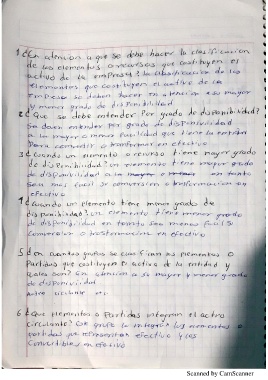 1 ¿En atencion a que se debe hacer la clasificacion
de los elementos o recursos que constituyen el
activo de la empresa? la clasificacion de los
elementos que constituyen el activo de la
Empresa se deben hacer en atencion a su mayor
y menor grado de disponibilidad
2 ¿ Que se debe entender por grado de disponibilidad?
Se debe entender por grado de disponibilidad
a la mayor o menor facilidad que tiene la entidad
Para convertir o transformar en efectivo
3 ¿Cuando un elemento o recurso tiene mayor grado
de disponibilidad? un elemento tiene mayor grado
de disponibilidad a la en tanto
sea mas facil su conversion o trasformacion en
efectivo
¿Cuando un elemento tiene menos grado de
disponibilidad? un elemento tiene menor grado
de disponibilidad en tanto sea menos facil su
conversion o trasformacion en efectivo
5 ¿ en cuantos grados se clasifican los elementos o
Partidas que costituyen el activo de la entidad y
Cuales son? En atencion a su mayor y menor grado
de disponividad
activo circulante
6 ¿ Que elementos o Partidas integran el activo
circulante? Este grupo lo integran los elementos o
partidas que representan efectivo y
Convertibles en efectivo
Scanned by CamScanner